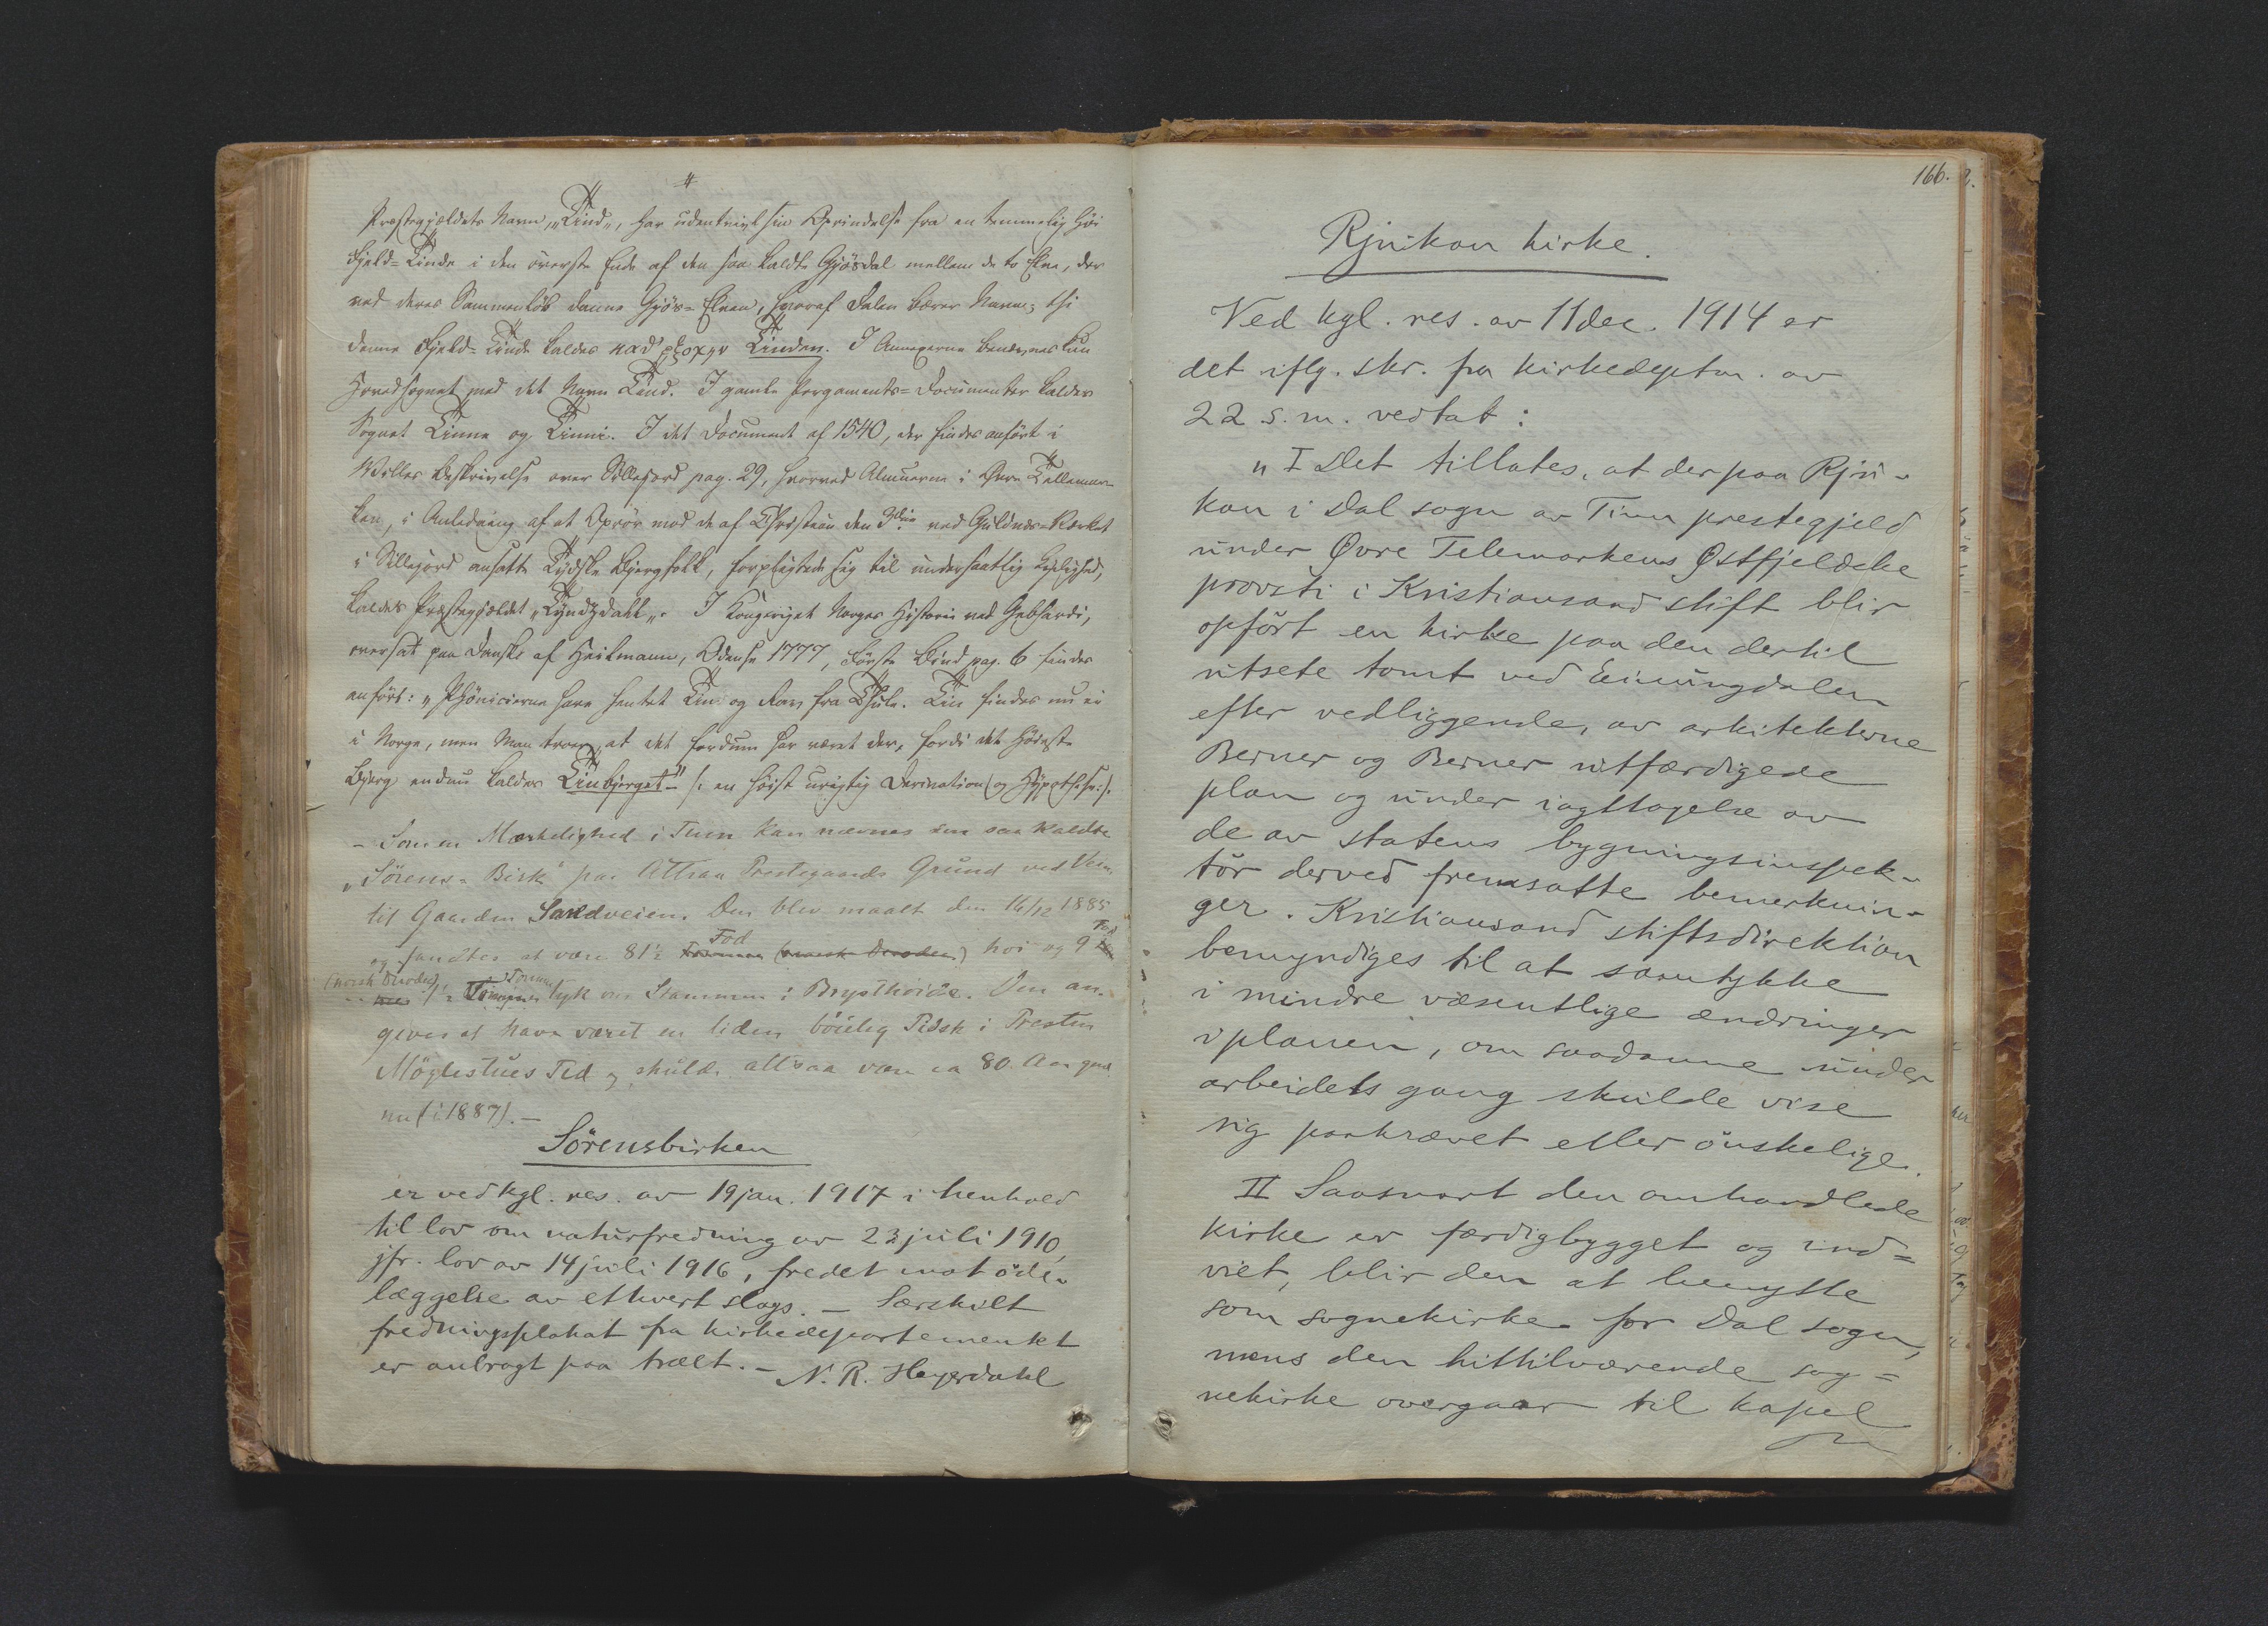 #
Præstegjældets Navn, „Tind„, har udentvivl sin Oprindelse fra en temmelig høi
Fjeld=Tinde i den överste Ende af den saa kaldte Gjösdal mellem de to Elve, der
ved deres Sammenlöb danne Gjös=Elven, hvoraf Dalen bærer Navn; thi
denne Fjeld=Tinde kaldes κατ' εξοχην Tinden. I Annexerne benævnes kun
Hovedsognet med det Navn Tind. I gamle Pergaments=Documenter kaldes
Sognet Tinna og Tinni. I det Document af 1540, der findes anfört i
Willes Beskrivelse over Sillejord pag. 29, hvorved Almuerne i Övre Tellemar-
ken, i Anledning af et Oprör mod de af Christian den 3die ved Guldnes=Værket
i Sillejord ansatte Tydske Bjergfolk, forpligtede sig til undersaatlig Lydighed,
kaldes Præstegjældet „Tyndzdall„. I Kongeriget Norges Historie ved Gebhardi,
oversat paa Dansk af Heilmann, Odense 1777, Förste Bind pag. 6 findes
anfört: „Phönicierne have hentet Tin og Rav fra Thule. Tin findes nu ei
i Norge, men Man troer, at det fordum har været der, fordi det höieste
Bjerg endnu kaldes Tinbjerget" /: en höist urigtig Derivation (og Hypothese:/.
- Som en Mærkelighed i Tinn kan nævnes den saa kaldte
„Sörens=Birk" paa Attraa Prestegaards Grund ved Vei-
til Gaarden Sandveien. Den blev maalt den 16/12 1885
og fandtes at være 81½ Fod høi og 9 Fod
(norsk Decoder) Tommer tyk om Stammen i Brysthöide. Den an-
gives at have været en liden böielig Pidsk i Presten
Möglestues Tid og skulde altsaa være ca 80 Aar gml.
nu (i 1887). -
Sörensbirken
er ved kgl. res. av 19 jan. 1917 i henhold
til lov om naturfredning av 23 juli 1910,
jfr. lov av 14 juli 1916, fredet mot öde-
læggelse av ethvert slags. - Særskilt
fredningsplakat fra kirkedepartementet
er anbragt paa træet. - N. R. Heyerdahl
166.
Rjukan kirke.
Ved kgl. res. av 11 dec. 1914 er
det iflg. skr. fra kirkedeptm. av
22 s.m. vedtat:
„I Det tillates, at der paa Rju-
kan i Dal sogn av Tinn prestegjeld
under Øvre Telemarkens Østfjeldske
provsti i Kristiansand stift blir
opfört en kirke paa den dertil
utsete tomt ved Einungdalen
efter vedliggende, av arkitekterne
Berner og Berner utfærdigede
plan og under iagttagelse av
de av statens bygningsinspek-
tör derved fremsatte bemerknin-
ger. Kristiansand stiftsdirektion
bemyndiges til at samtykke
i mindre væsentlige ændringer
i planen, om saadanne under
arbeidets gang skulde vise
sig paakrævet eller önskelige.
II Saasnart den omhandlede
kirke er færdigbygget og ind=
viet, blir den at benytte
som sognekirke for Dal sogn,
mens den hittilværende sog=
nekirke overgaar til kapel